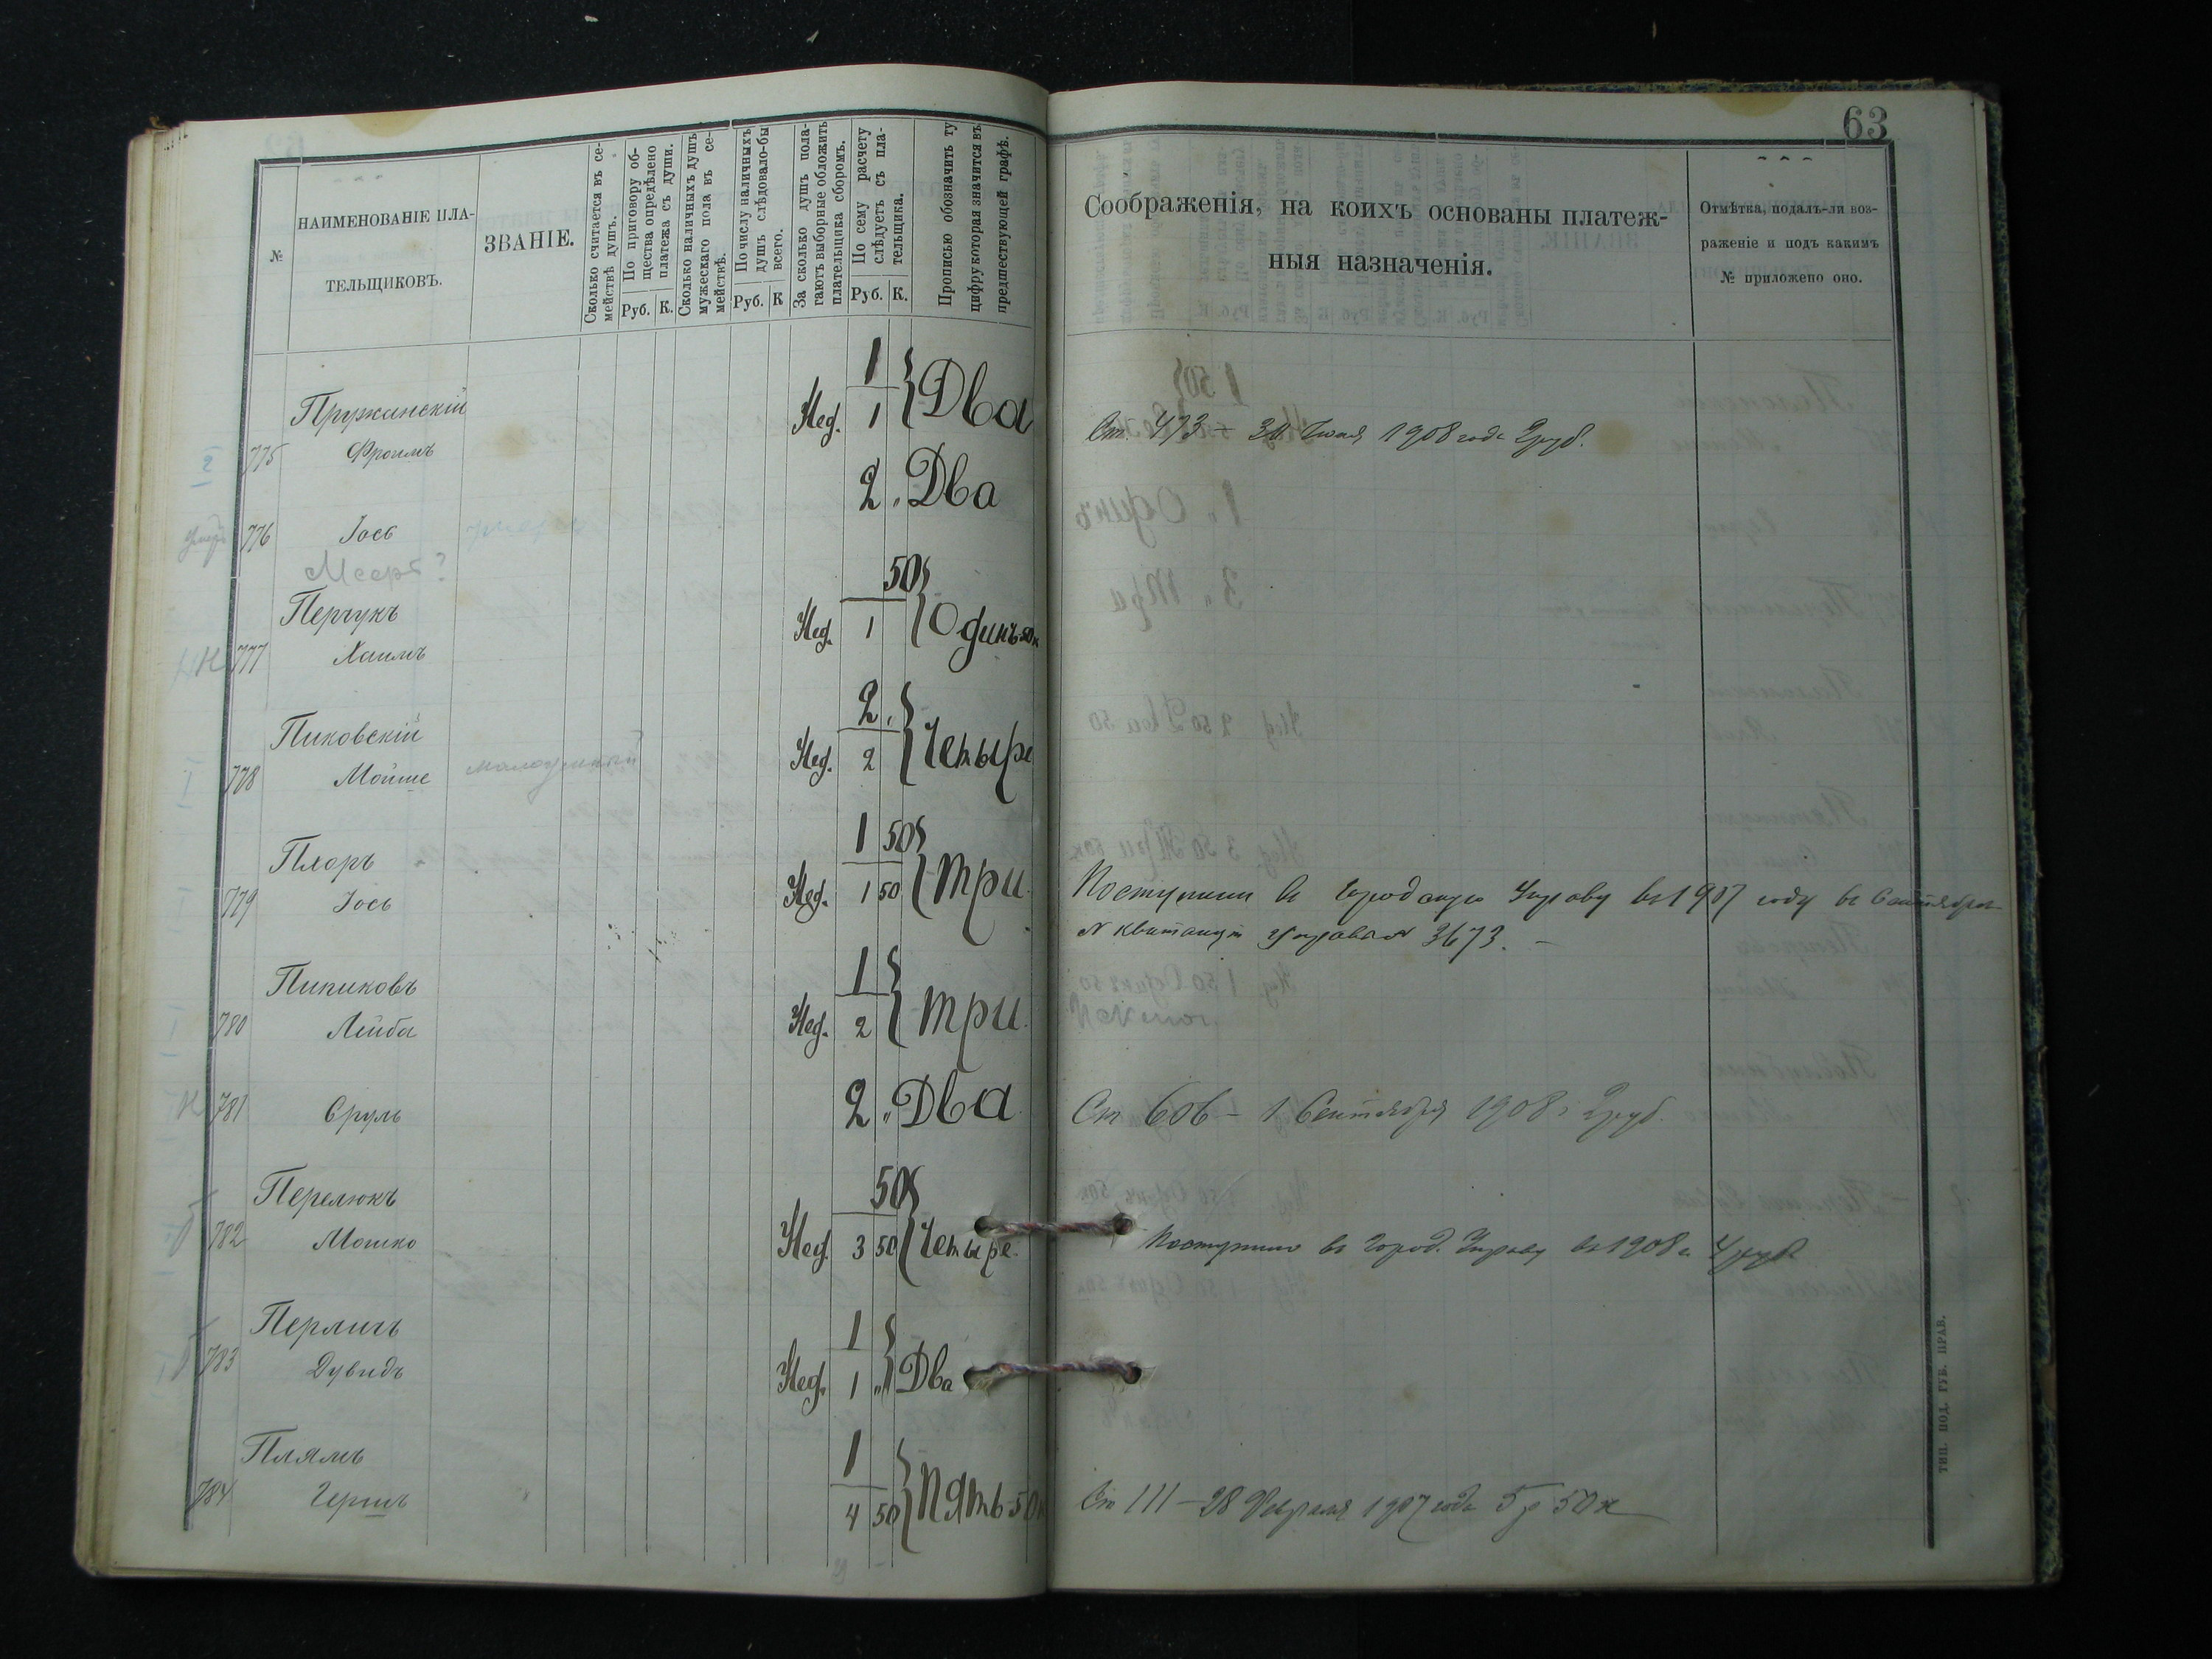 63
№
НАИМЕНОВАНІЕ ПЛА-
ТЕЛЬЩИКОВЪ.
ЗВАНІЕ.
Сколько считается въ се-
мействѣ душъ.
По приговору об-
щества опредѣлено
платежа съ души.
Руб. К.
Сколько наличныхъ душъ
мужескаго пола въ се-
мействѣ.
По числу наличныхъ
душъ слѣдовало-бы
всего.
Руб. К
За сколько душъ пола-
гаютъ выборные обложить
плательщика сборомъ.
По сему расчету
слѣдуетъ съ пла-
тельщика.
Руб. К.
Прописью обозначить ту
цифру которая значится въ
предшествующей графѣ.
Соображенія, на коихъ основаны платеж-
ныя назначенія.
Отмѣтка, подалъ-ли воз-
раженіе и подъ какимъ
№ приложено оно.
Пружанскій 1
775 Фроимъ Нед. 1 Два
Ст. 473 - 30 1908 года 2 руб.
776 Іось 2 " Два
Мееръ?
Перчукъ 50
777 Хаимъ Нед. 1 Одинъ 50 к
Пиковскій 2 "
778 Мойше Нед. 2 Четыре
Плоръ 1 50
779 Іось Нед. 1 50 три
Поступили въ Городскую Управу въ 1907 году въ Сентябрѣ
№ квитанціи Управы № 3673. -
Пипиковъ 1
780 Лейба Нед. 2 три
781 Сруль 2 " Два
Ст 606 - 1 Сентября 1908 г 2 руб.
Перелюкъ 50
782 Мошко Нед. 3 50 Четыре.
Поступило въ Город. Управу въ 1908 г. 4 руб
Перличъ 1
783 Дувидъ Нед. 1 " Два
Плямъ 1
784 Гершъ 4 50 Пять 50
Ст 111 - 28 Февраля 1907 года 5 р 50 к
ТИП. ПОД. ГУБ. ПРАВ.